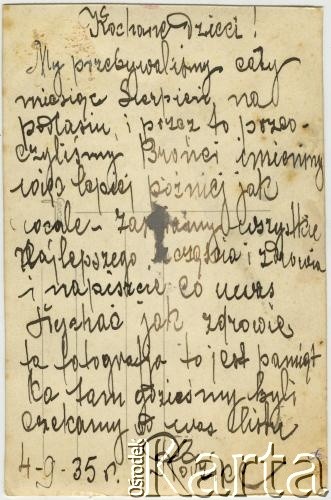 Kochane dzieci!
My przebywaliśmy cały
miesiąc Sierpień na
podlasiu, i przez to przeo
czyliśmy Bronci imieniny
więc lepiej późniéj jak
wcale - wszystkie
Najlepszego i zdrowia
i napiszcie co u was
słychać jak zdrowie
ta fotografja to jest pamiąt
ka tam gdzieśmy byli
czekamy od was listu
4-9-35 r.
Ośrodek Karta